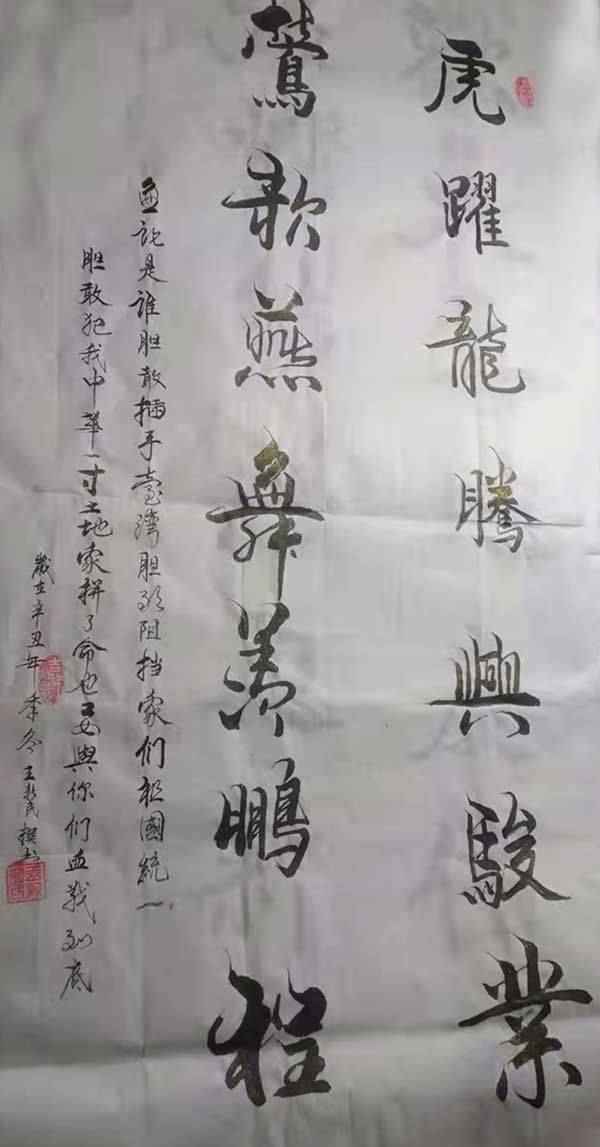 虎躍龍騰興駿業
鶯歌燕舞羨鵬程
無論是誰胆敢插手臺灣胆敢阻挡家们祖國統一
胆敢犯我中華一寸土地家拼了命也要與你们血戰到底
歲在辛丑年季冬王民撰书